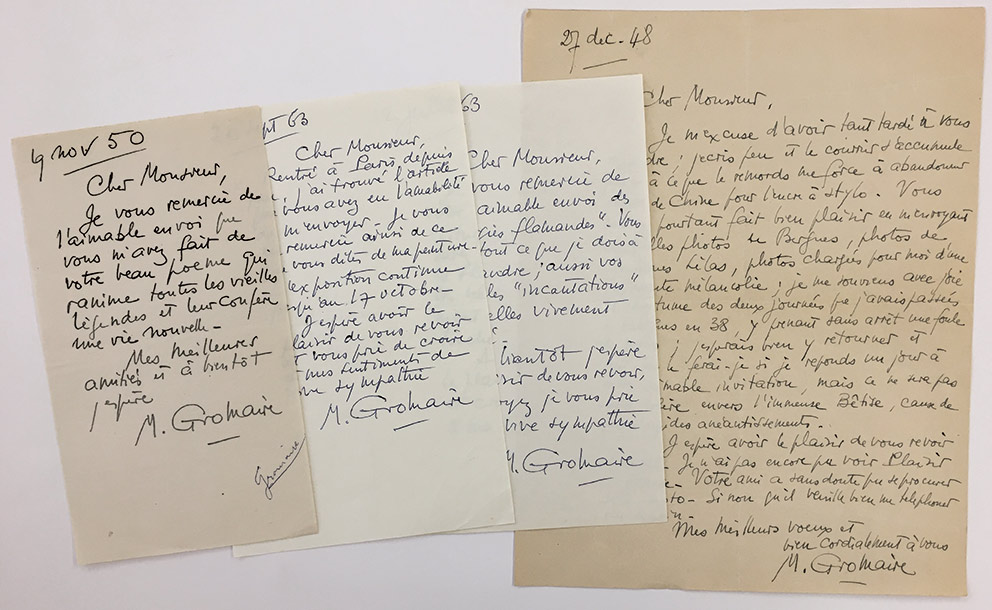 19 nov 50
Cher Monsieur,
Je vous remercie de
l'aimable envoi que
vous m'avez fait de
votre beau poème qui
ranime toutes les vieilles
légendes et leur confère
une vie nouvelle -
Mes meilleures
amitiés et à bientôt
j'espère
M. Gromaire
Gromaire
pt 63
Cher Monsieur,
Rentré à Paris depuis
, j'ai trouvé l'article
vous avez eu l'amabilité
m'envoyer. Je vous
remercie ainsi de ce
vous dites de ma peinture.
exposition continue
squ'au 17 octobre -
J'espère avoir le
plaisir de vous revoir
vous prie de croire
mes sentiments de
sympathie
M. Gromaire
63
Cher Monsieur,
vous remercie de
aimable envoi des
flamandes". Vous
tout ce que je dois à
andre ; aussi vos
les "incantations"
elles vivement
bientôt j'espère
isir de vous revoir,
oyez je vous prie
vive sympathie
M. Gromaire
27 dec - 48
Cher Monsieur,
Je m'excuse d'avoir tant tardé à vous
dre ; j'ecris peu et le courrier s'accumule
à ce que le remords me force à abandonner
de Chine pour l'encre à stylo. Vous
pourtant fait bien plaisir en m'envoyant
lles photos de Bergues, photos de
Lilas, photos chargées pour moi d'une
mélancolie ; je me souviens avec joie
tume des deux journées que j'avais passées
en 38, y prenant sans arrêt une foule
; j'espérais bien y retourner et
le ferai-je si je reponds un jour à
mable invitation, mais ce ne sera pas
envers l'immense Bêtise, cause de
anéantissements.
J'espère avoir le plaisir de vous revoir
Je n'ai pas encore pu voir Plaisir
Votre ami a sans doute pu se procurer
to - Si non qu'il veuille bien me telephoner
Mes meilleurs voeux et
bien cordialement à vous
M. Gromaire